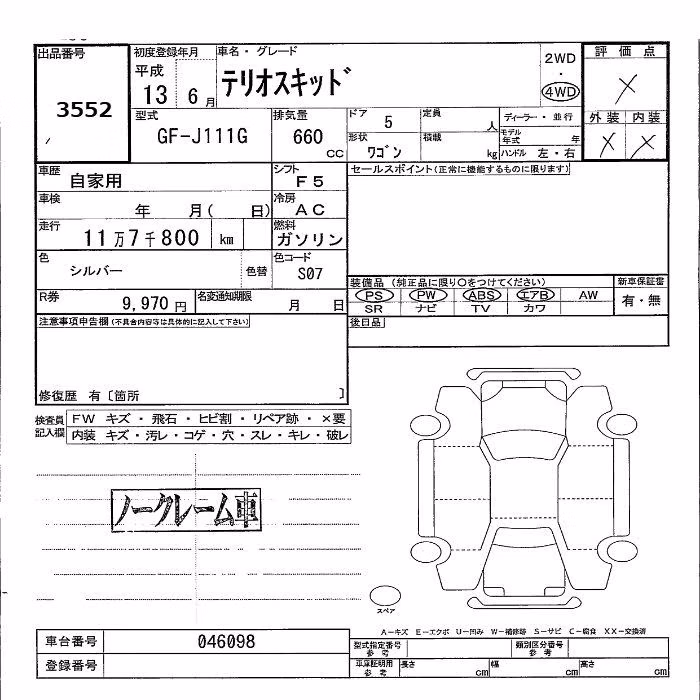 出品番号
3552
初度登録年月
平成
13 6月
車名・グレード
テリオスキッド
2WD
・
4WD
評価点
×
型式
GF-J111G
排気量
660
CC
ドア
5
定員
人
ディーラー・並行
モデル年式 年
外装 内装
× ×
形状
ワゴン
積載
kg
ハンドル 左・右
車歴
自家用
シフト
F5
セールスポイント(正常に機能するものに限ります)
車検
年 月( 日)
冷房
AC
走行
11万7千800 km
燃料
ガソリン
色
シルバー
色替
色コード
S07
装備品 (純正品に限り○をつけてください)
新車保証書
PS PW ABS エアB AW
有・無
SR ナビ TV カワ
R券
9,970円
名変通知期限
月 日
後日品
注意事項申告欄(不具合内容等は具体的に記入して下さい)
修復歴 有〔箇所 〕
検査員記入欄
FW キズ・飛石・ヒビ割・リペア跡・×要
内装 キズ・汚レ・コゲ・穴・スレ・キレ・破レ
ノークレーム車
スペア
A-キズ E-エクボ U-凹み W-補修跡 S-サビ C-腐食 XX-交換済
車台番号
046098
型式指定番号
参考
類別区分番号
参考
登録番号
車庫証明用
参考
長さ cm
幅 cm
高さ cm